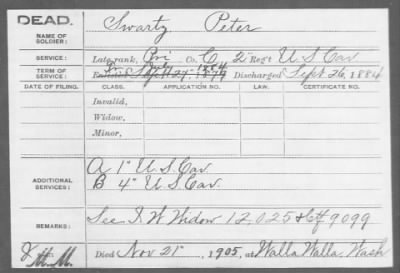 DEAD.
NAME OF SOLDIER: Swartz Peter
SERVICE: Late rank, Pri Co. C 2" Reg't U S Cav
TERM OF SERVICE: Enlisted Sept 27, 1879 Discharged Sept 26, 1884
DATE OF FILING. CLASS. APPLICATION NO. LAW. CERTIFICATE NO.
Invalid,
Widow,
Minor,
ADDITIONAL SERVICES:
A 1" U S Cav.
B 4" U S Cav.
REMARKS: See I. W. Widow 12,025 & Ctf 9099
M. M. Died Nov 21", 1905, at Walla Walla, Wash